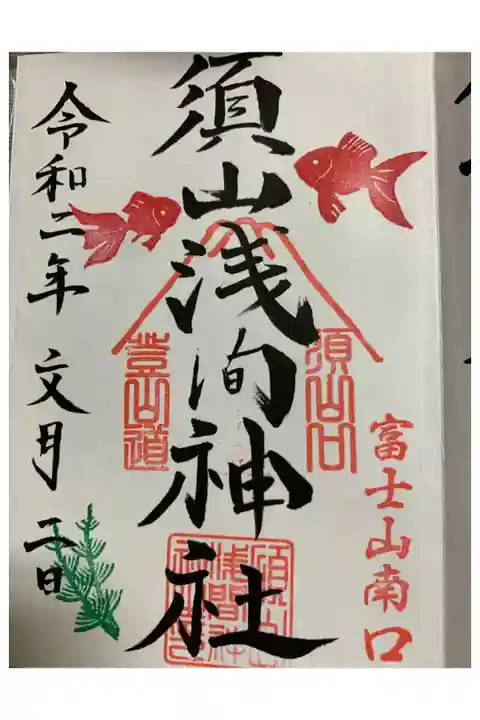 富士山南口
須山口
須山浅间神社
登山道
須山浅間神社
令和二年 文月 二日